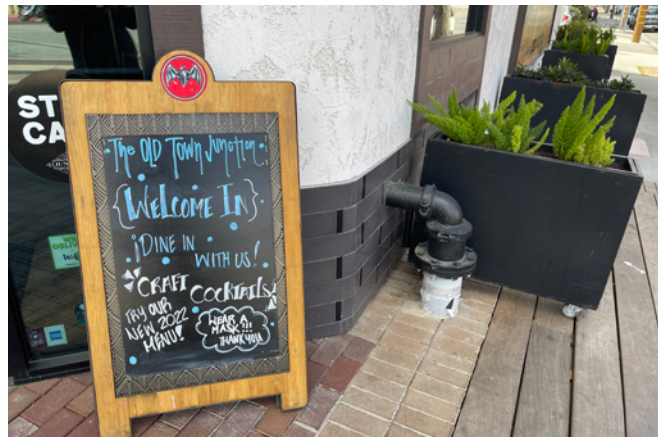 The OLD Town Junction
{WELCOME IN}
¡DINE IN
WITH US!
CRAFT COCKTAILS!
TRY OUR
NEW 2022
MENU!
WEAR A
MASK!!!
THANK YOU
ST
CA